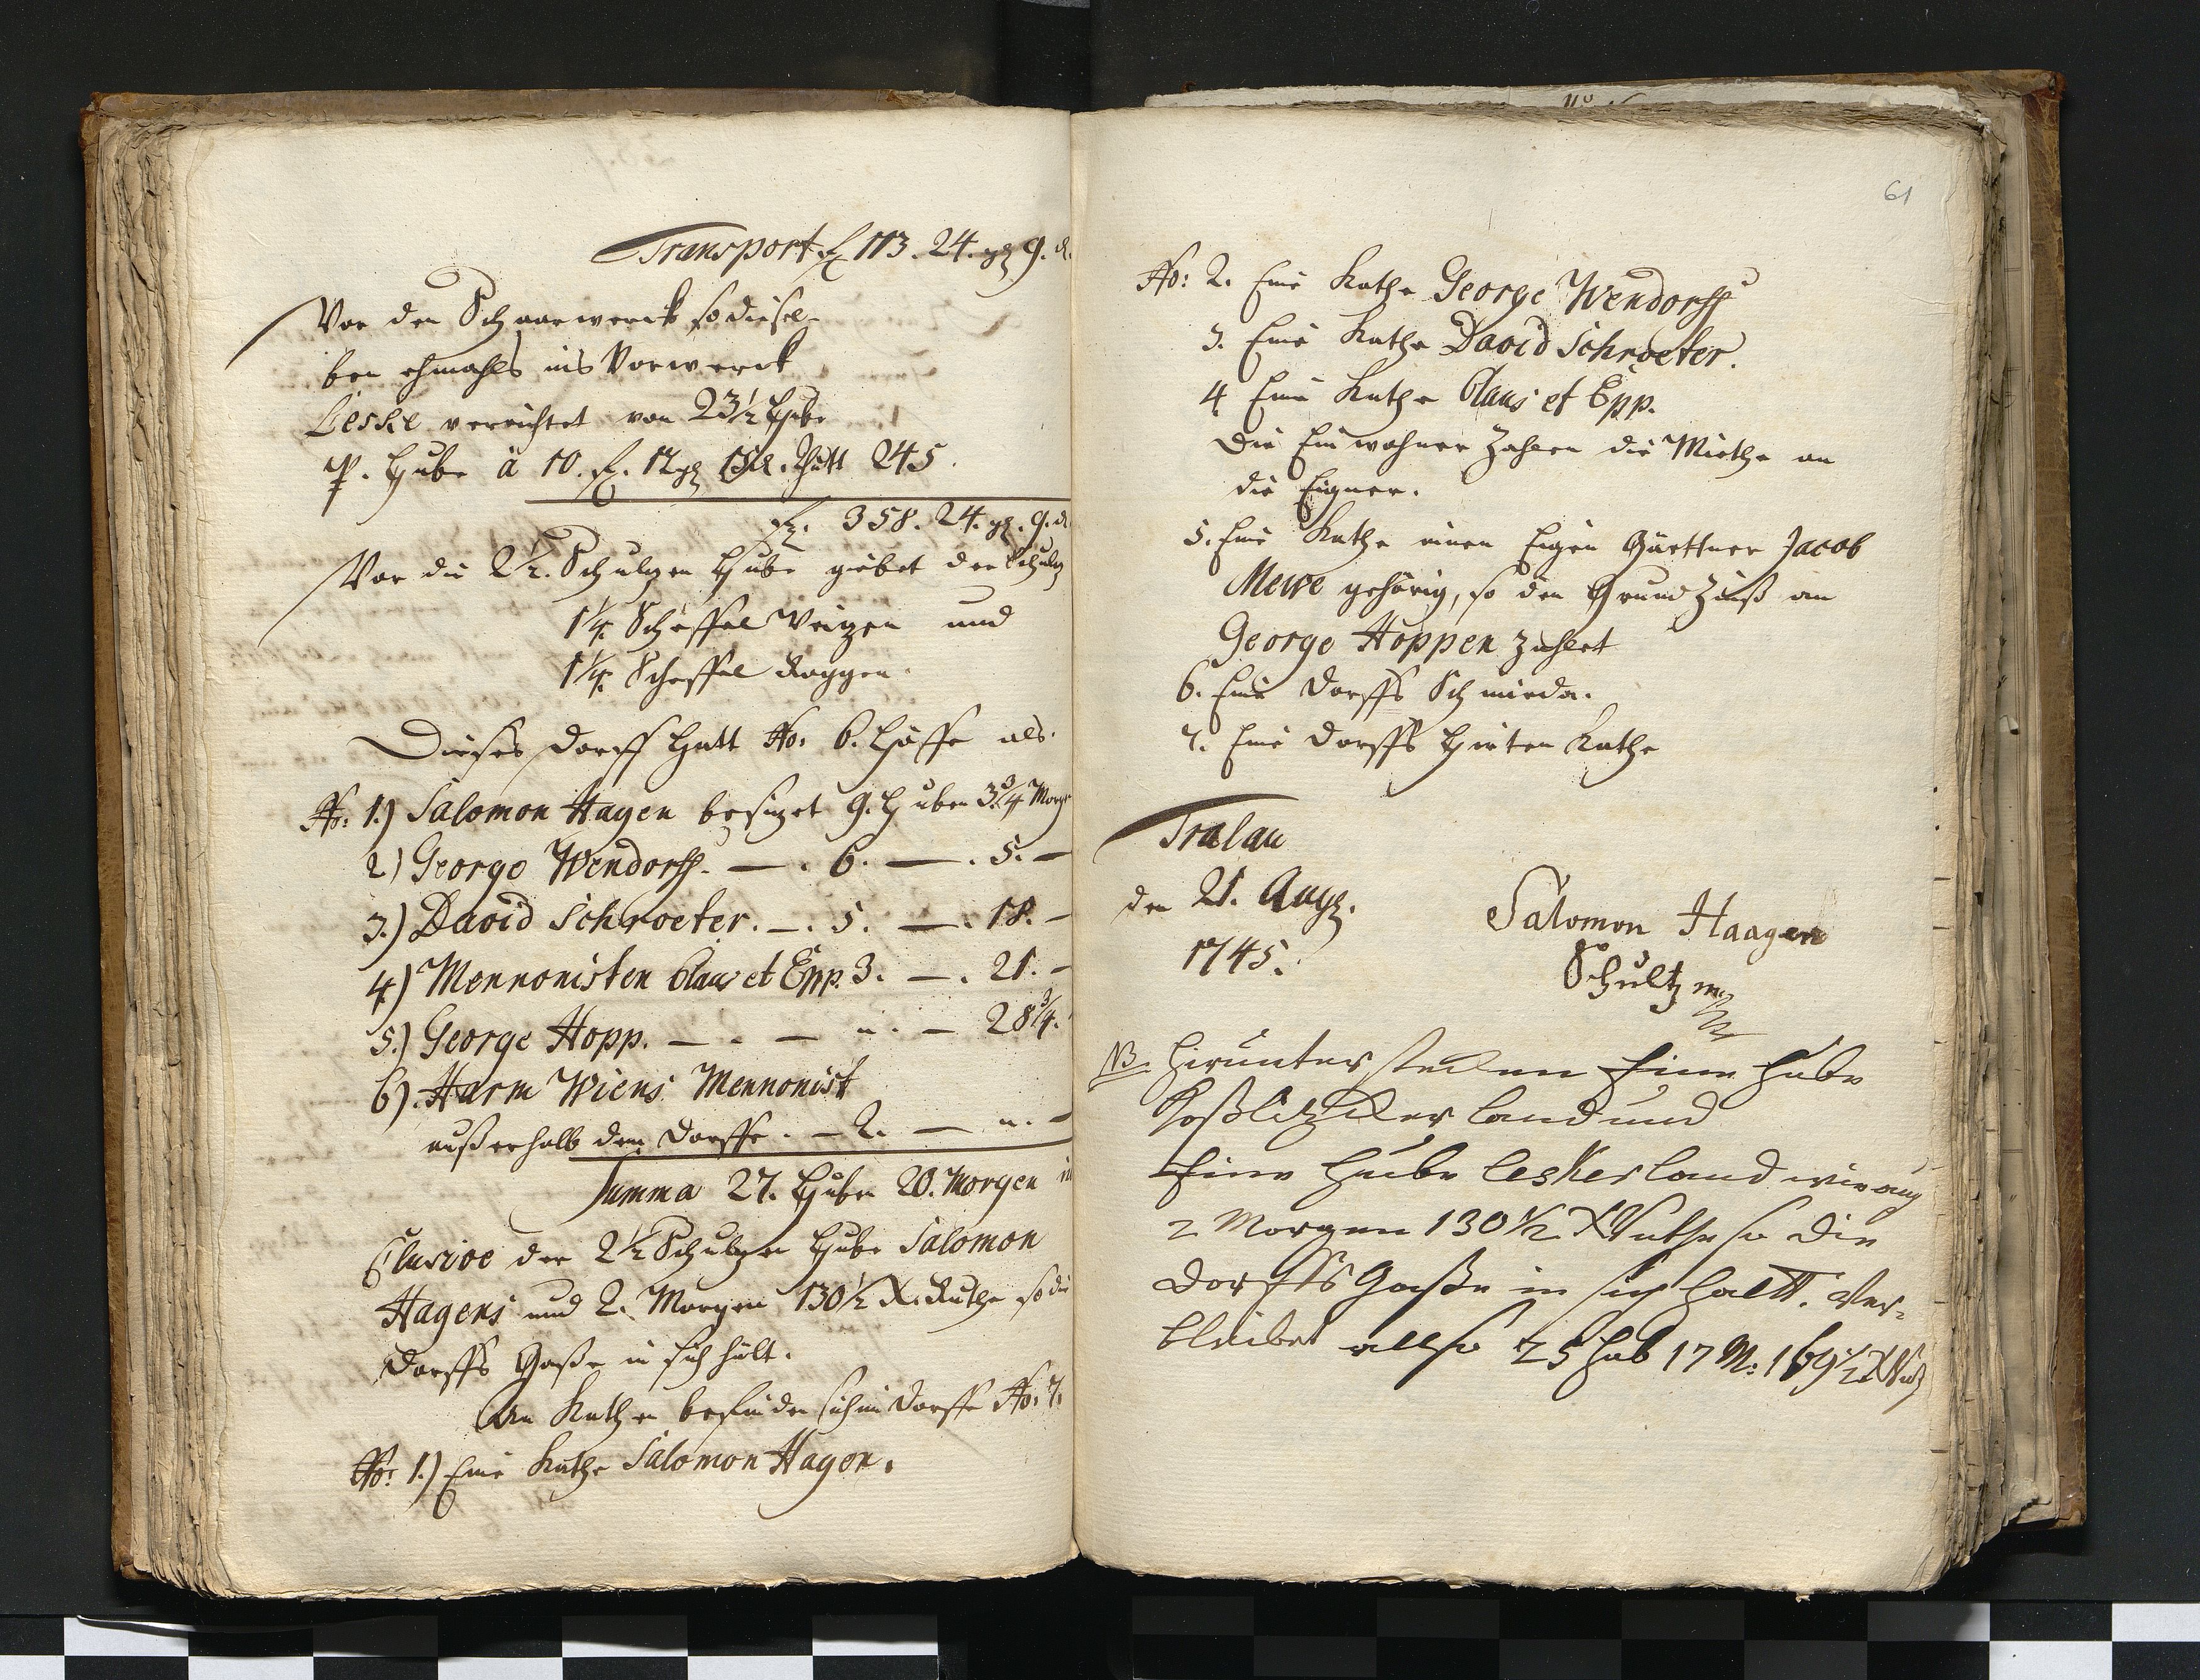 Transport fl 113. 24. gl 9. d.
Vor den Schaarwerck so diesel-
ben ehmahls ins Vorwerck
Leske verrichtet von 23½ Hube
P. Hube à 10. fl. 12 gl 15 d. thutt 245.
fl. 358. 24. gl. 9. d.
Vor die 2½. Schulzen Hube giebet der Schulz
1¼. Scheffel Weitzen und
1¼. Scheffel Roggen.
Dieses Dorff hatt No: 6. Höffe als.
No: 1.) Salomon Hagen besizet 9. Huben 3¾ Morg
2) George Wendorff. — . 6. — . 5. —
3.) David Schroeter. — . 5. — . 18. —
4.) Mennonisten Claus et Epp. 3. — . 21. —
5.) George Hopp. — . — u. — 28¾.
6). Harm Wiens Mennonist
außerhalb dem Dorffe. — 2. — u. —
Summa 27. Huben 20. Morgen in
Clusive der 2½ Schulzen Hube Salomon
Hagens und 2. Morgen 130½ X. Ruthe so die
Dorffs Gaße in sich hält.
An Kathen befinden sich in Dorffe No: 7.
No: 1.) Eine Kathe Salomon Hagen.
61
No: 2. Eine Kathe George Wendorff
3. Eine Kathe David Schroeter.
4 Eine Kathe Claus et Epp.
Die Einwohner Zahlen die Miethe an
die Eigner.
5. Eine Kathe einen Eigen Gärttner Jacob
Mewe gehörig, so den Grund Zinß an
George Hoppen zahlet
6. Eine Dorffs Schmiede.
7. Eine Dorffs Hirten Kathe
Tralau
den 21. Augs.
1745.
Salomon Haagen
Schultz mp
NB. hirunter stecken Eine Hube
Koßlitzker land und
Eine Hube lesker land wie auch
2 Morgen 130½ X Ruthe so die
Dorffs Gaße in sich haltt. Ver-
bleibet allso 25 Hub 17 M: 169½ X Rut